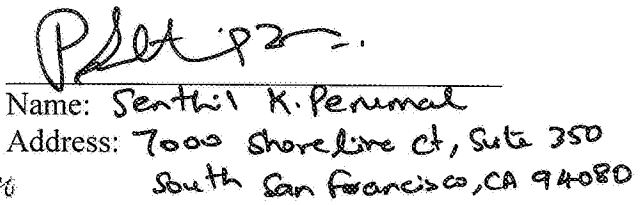 Name: Senthil K. Perumal
Address: 7000 Shoreline Ct, Suite 350
South San Francisco, CA 94080